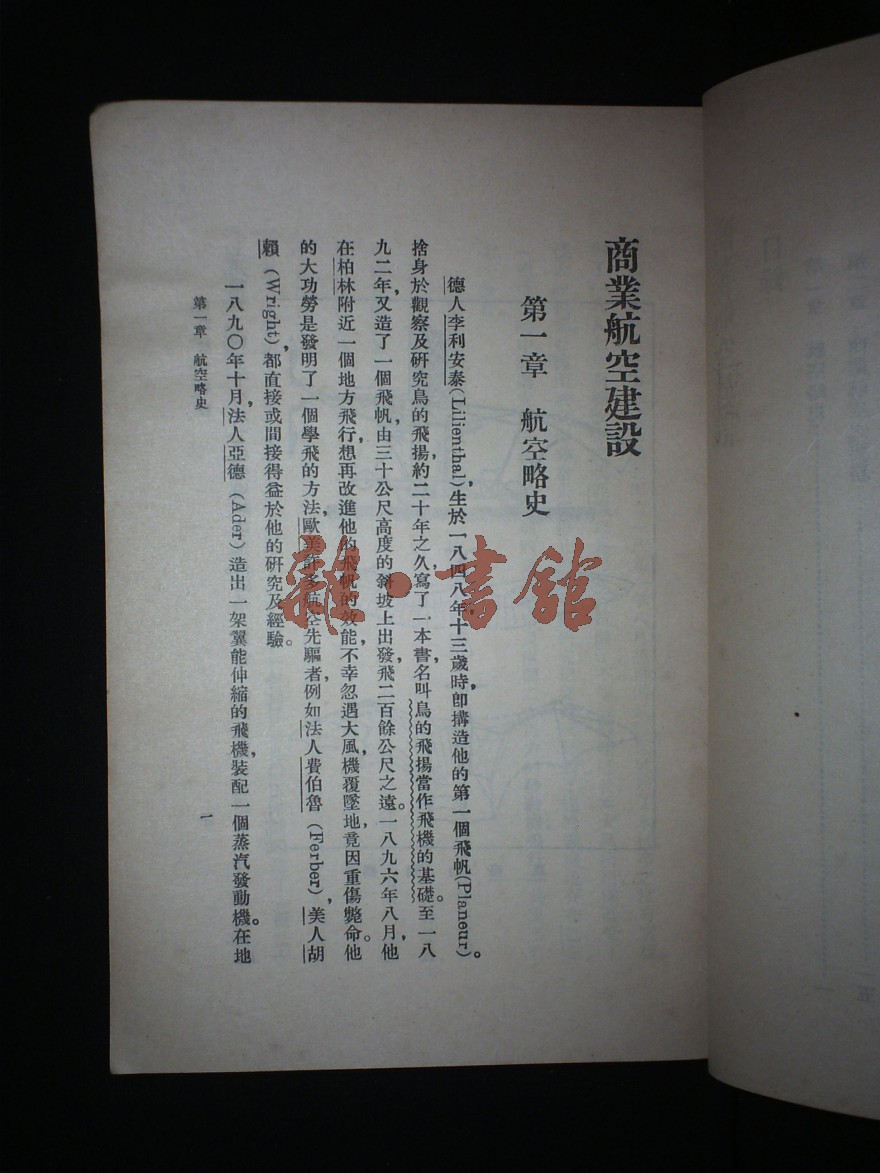 商業航空建設
第一章 航空略史
德人李利安泰(Lilienthal),生於一八四八年十三歲時卽搆造他的第一個飛帆(Planeur)。
捨身於觀察及研究鳥的飛揚,約二十年之久,寫了一本書名叫鳥的飛揚當作飛機的基礎。至一八
九二年,又造了一個飛帆,由三十公尺高度的斜坡上出發,飛二百餘公尺之遠。一八九六年八月,他
在柏林附近一個地方飛行,想再改進他的飛帆的效能,不幸忽遇大風,機覆墜地,竟因重傷斃命。他
的大功勞是發明了一個學飛的方法,歐美許多航空先驅者,例如法人費伯魯(Ferber),美人胡
賴(Wright),都直接或間接得益於他的研究及經驗。
一八九〇年十月,法人亞德(Ader)造出一架翼能伸縮的飛機,裝配一個蒸汽發動機。在地
第一章 航空略史
一
雜·書館